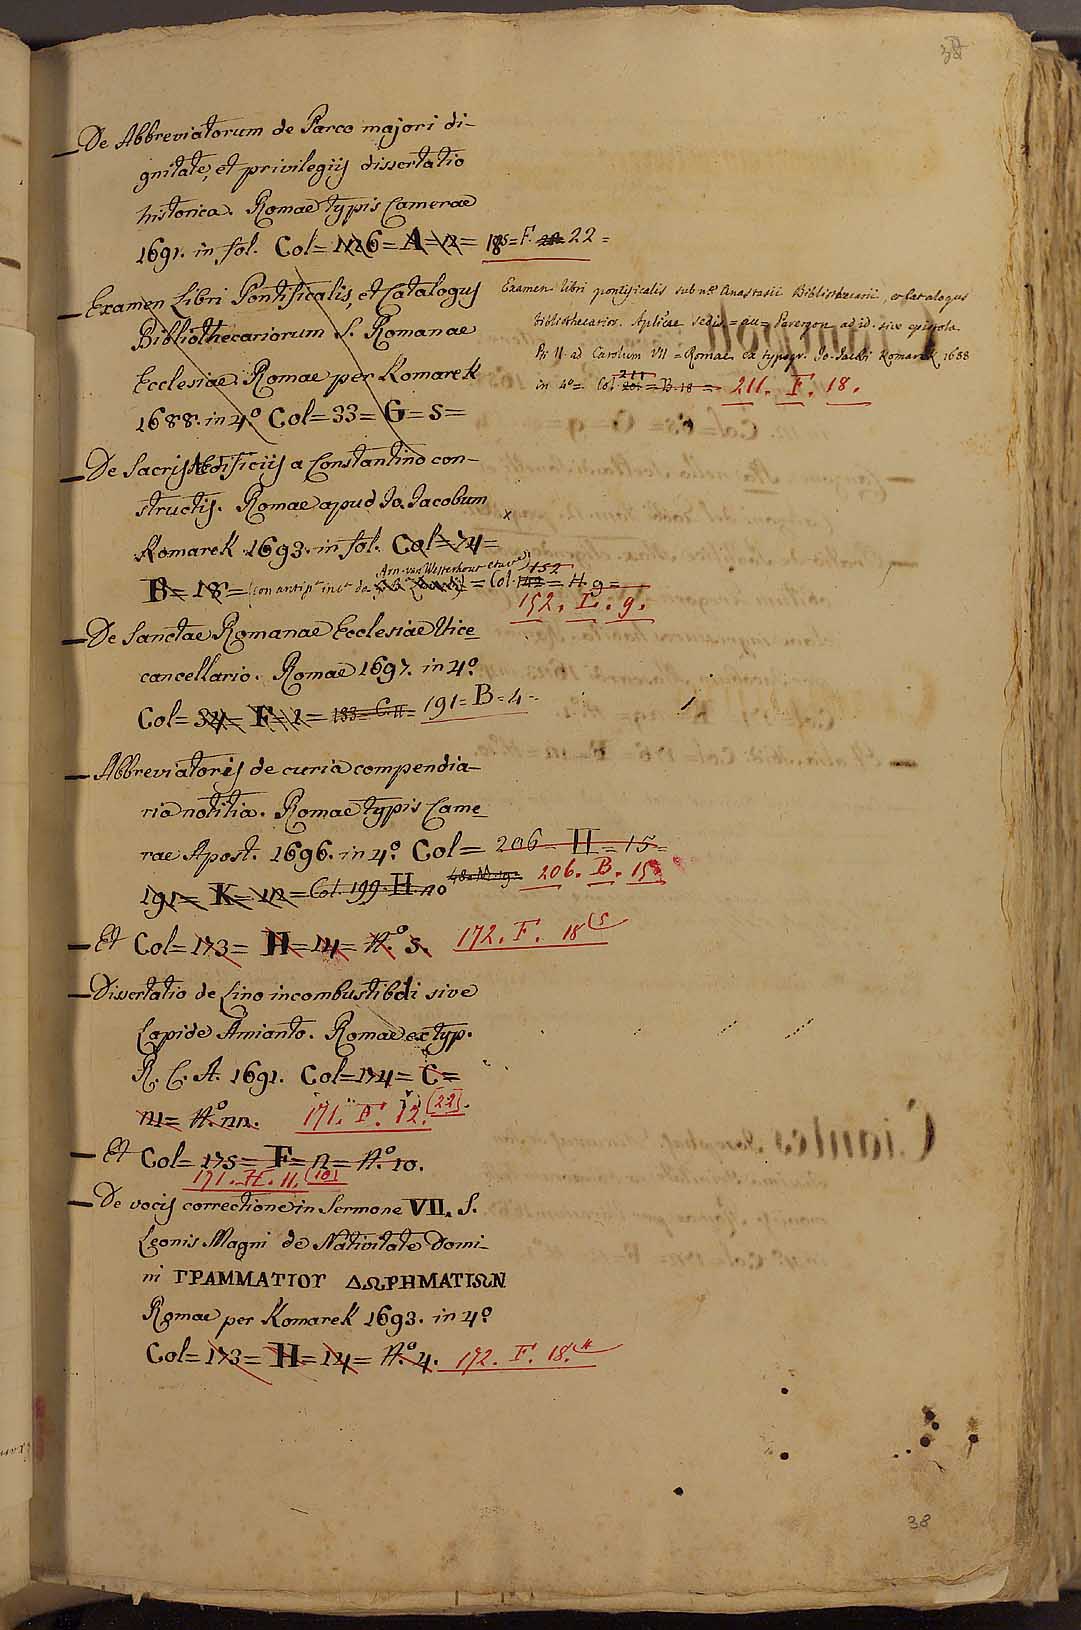 38
De Abbreviatorum de Parco majori di-
gnitate, et privilegijs dissertatio
historica. Romae typis Camerae
1691. in fol. Col= 126= A= 12= 185= F. 22=
Examen Libri Pontificalis, et Catalogus
Bibliothecariorum S. Romanae
Ecclesiae. Romae per Komarek
1688. in 4.º Col= 33= G= 5=
Examen libri pontificalis sub nẽ Anastasii Bibliothecarii, et Catalogus
Bibliothecarior. Aplicae sedis = au= Parergon ad id. sive epistola
Pii II. ad Carolum VII = Romae ex typogr. Jo. Jacobi Komarek 1688
in 4º= Col. 201 211 = B. 18 = 211. F. 18.
De Sacris Aedificijs a Constantino con-
structis. Romae apud Jo. Jacobum
Komarek 1693. in fol. Col= 74=
B= 18= Arn. van Westerhout = Col. 142 152 = H. 9=
152. E. 9.
De Sanctae Romanae Ecclesiae Vice
cancellario. Romae 1697. in 4º
Col= 34= F= 2= 133= C. 11= 191= B= 4=
Abbreviatoris de curia compendia-
ria notitia. Romae typis Came
rae Apost. 1696. in 4º. Col= 206= H= 15=
191= K= 12= Col. 199. H. 10 206. B. 15
Et Col= 173= H= 14= N.º 5. 172. F. 18 (5
Dissertatio de Lino incombustibili sive
Lapide Amianto. Romae ex typ.
R. C. A. 1691. Col= 174= C=
11= N.º 22. 171. F. 12. (22).
Et Col= 175= F= 12= N.º 10.
171. H. 11. (10)
De vocis correctione in Sermone VII. S.
Leonis Magni de Nativitate Domi-
ni ΓΡΑΜΜΑΤΙΟΥ ΔΩΡΗΜΑΤΙΩΝ
Romae per Komarek 1693. in 4º
Col= 173= H= 14= N.º 4. 172. F. 18. (4
38